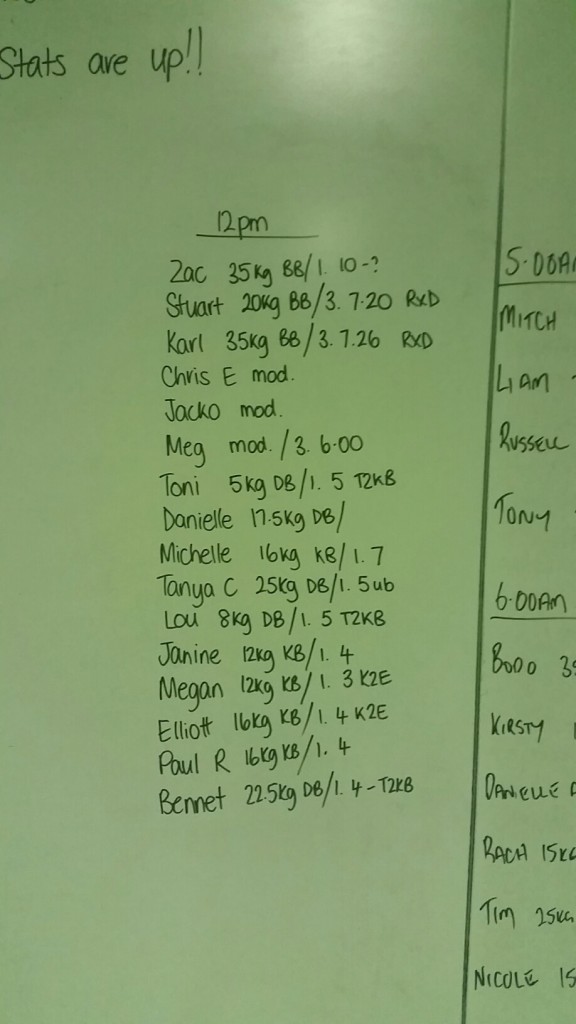 Stats are up!!
12pm
Zac 35kg BB/1. 10-?
Stuart 20kg BB/3. 7.20 RXD
Karl 35kg BB/3. 7.26 RXD
Chris E mod.
Jacko mod.
Meg mod./3. 6.00
Toni 5kg DB/1. 5 T2KB
Danielle 17.5kg DB/
Michelle 16kg KB/1. 7
Tanya C 25kg DB/1. 5ub
Lou 8kg DB/1. 5 T2KB
Janine 12kg KB/1. 4
Megan 12kg KB/1. 3 K2E
Elliott 16kg KB/1. 4 K2E
Paul R 16kg KB/1. 4
Bennet 22.5kg DB/1. 4-T2KB
5.00AM
MITCH
LIAM
RUSSELL
TONY
6.00AM
BOOO
KIRSTY
DANIELLE
RACH 15KG
TIM 25KG
NICOLE 15